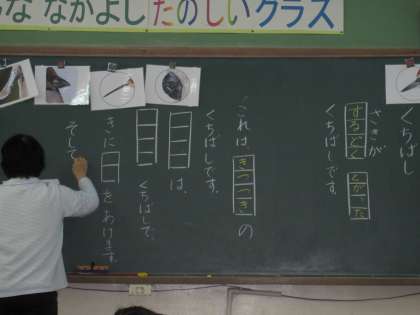 んな なかよし たのしい クラス
くちばし
さきが
するどく とがった
くちばしです。
これは、きつつきの
くちばしです。
は、
くちばしで、
きに をあけます。
そして